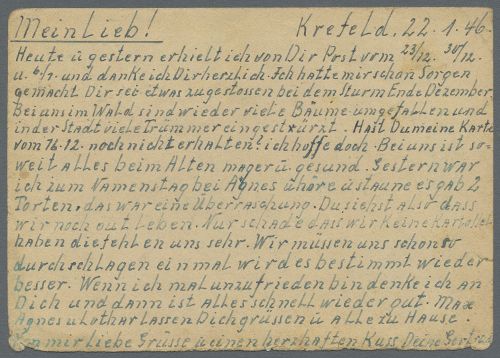 Mein Lieb! Krefeld. 22.1.46.
Heute u gestern erhielt ich von Dir Post vom 23/12. 30/12.
u. 6/1. und danke ich Dir herzlich. Ich hatte mir schon Sorgen
gemacht Dir sei etwas zugestossen bei dem Sturm Ende Dezember
Bei uns im Wald sind wieder viele Bäume umgefallen und
in der Stadt viele Trümmer eingestürzt. Hast Du meine Karte
vom 16.12. noch nicht erhalten? ich hoffe doch. Bei uns ist so-
weit alles beim Alten mager u. gesund. Gestern war
ich zum Namenstag bei Agnes u höre u staune es gab 2
Torten, das war eine Überraschung. Du siehst also dass
wir noch gut leben. Nur schade dass wir keine Kartoffel
haben die fehlen uns sehr. Wir müssen uns schon so
durchschlagen einmal wird es bestimmt wieder
besser. Wenn ich mal unzufrieden bin denke ich an
Dich und dann ist alles schnell wieder gut. Max
Agnes u Lothar lassen Dich grüssen u alle zu Hause.
Von mir liebe Grüsse u einen herzhaften Kuss Deine Gertrud